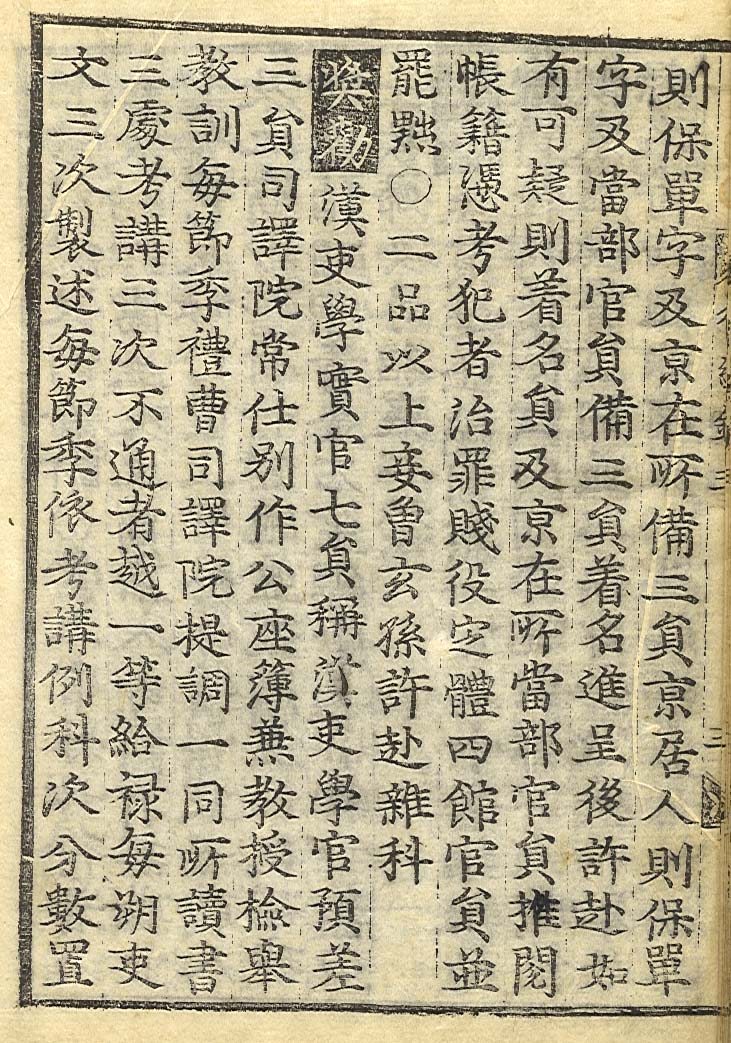 則保單字及京在所備三貟京居人則保單
字及當部官貟備三貟着名進呈後許赴如
有可疑則着名貟及京在所當部官貟推閱
帳籍憑考犯者治罪賤役定體四館官貟並
罷黜○二品以上妾曾玄孫許赴雜科
奬勸漢吏學實官七貟稱漢吏學官預差
三貟司譯院常仕別作公座簿兼教授檢舉
教訓每節季禮曹司譯院提調一同所讀書
三處考講三次不通者越一等給祿每朔吏
文三次製述每節季依考講例科次分數置